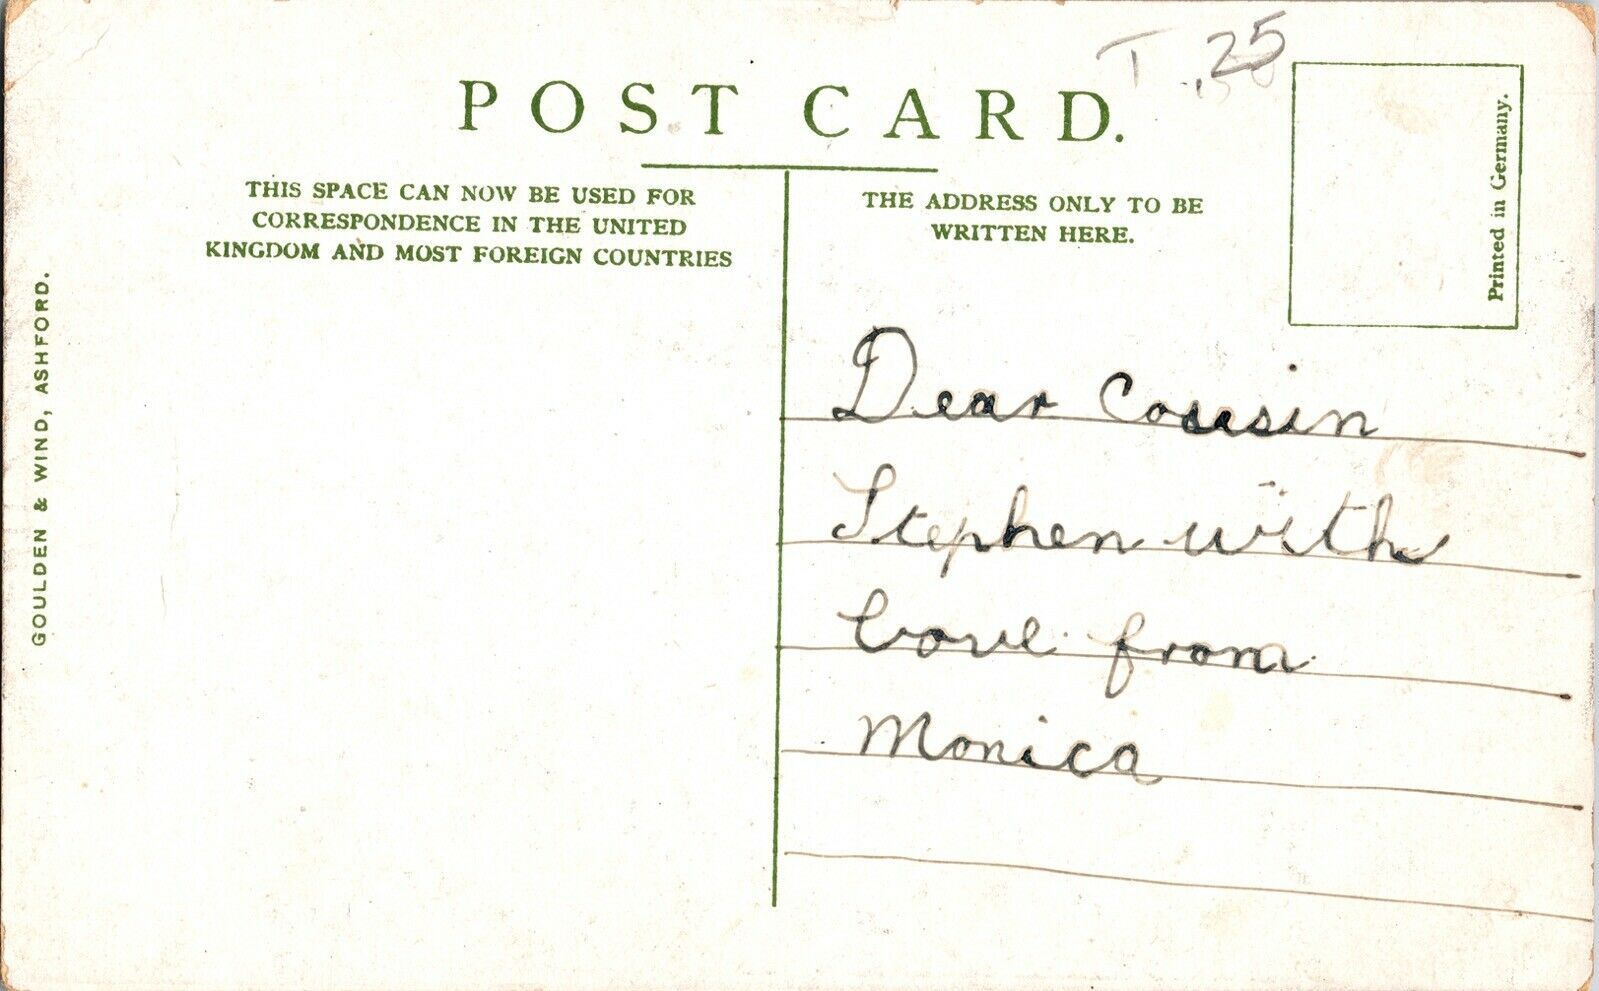 T .25
POST CARD.
THIS SPACE CAN NOW BE USED FOR
CORRESPONDENCE IN THE UNITED
KINGDOM AND MOST FOREIGN COUNTRIES
THE ADDRESS ONLY TO BE
WRITTEN HERE.
Printed in Germany.
GOULDEN & WIND, ASHFORD.
Dear Cousin
Stephen with
love from
Monica